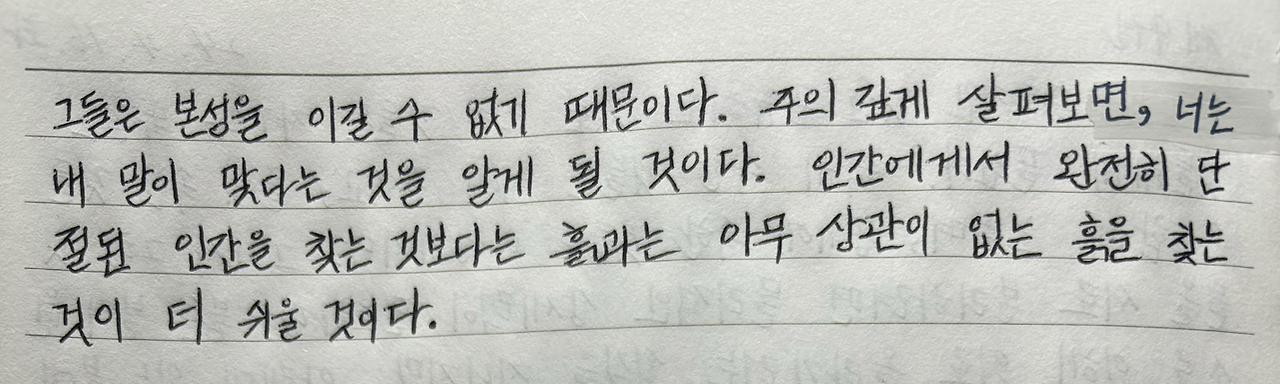 그들은 본성을 이길 수 없기 때문이다. 주의 깊게 살펴보면, 너는
내 말이 맞다는 것을 알게 될 것이다. 인간에게서 완전히 단
절된 인간을 찾는 것보다는 흙과는 아무 상관이 없는 흙을 찾는
것이 더 쉬울 것이다.